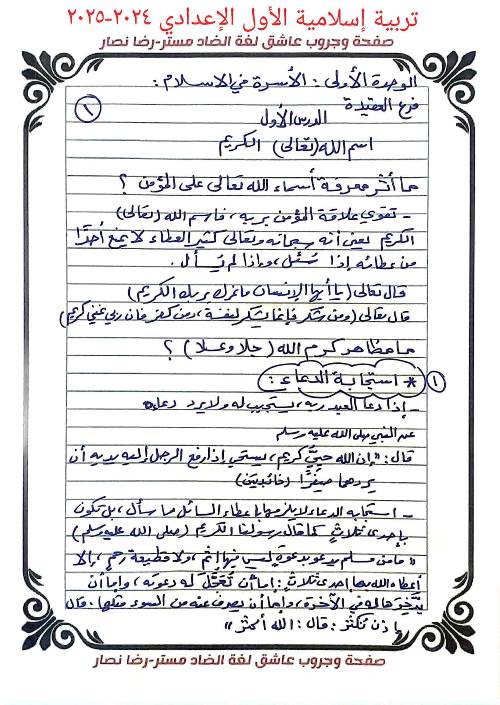 تربية إسلامية الأول الإعدادي ٢٠٢٤-٢٠٢٥
صفحة وجروب عاشق لغة الضاد مستر-رضا نصار
الوحدة الأولى : الأسرة في الاسلام :
فرع العقيدة
١
الدرس الأول
اسم الله (تعالى) الكريم
ما أثر معرفة أسماء الله تعالى على المؤمن ؟
- تقوي علاقة المؤمن بربه ، فاسم الله (تعالى)
الكريم يعني أنه سبحانه وتعالى كثير العطاء لا يمنع أحدًا
من عطائه إذا سُئل ، وإذا لم يُسأل .
قال تعالى (يا أيها الإنسان ما غرك بربك الكريم)
قال تعالى (ومن شكر فإنما يشكر لنفسه ، ومن كفر فان ربي غني كريم)
ما مظاهر كرم الله (جلا وعلا) ؟
١ * استجابة الدعاء :
- إذا دعا العبد ربه ، يستجيب له ولا يرد دعاءه
عن النبي صلى الله عليه وسلم
قال : "إن الله حييٌّ كريم ، يستحي إذا رفع الرجل إليه يديه أن
يردهما صِفْرًا (خائبتين)
- استجابه الدعاء لا يلزم منها عطاء السائل ما سأل ، بل تكون
بإحدى ثلاثٍ كما قال رسولنا الكريم (صلى الله عليه وسلم)
"ما من مسلم يدعو بدعوةٍ ليس فيها إثم ، ولا قطيعة رحمٍ ، إلا
أعطاه الله بها إحدى ثلاثٍ : إما أن تُعَجَّل له دعوته ، وإما أن
يدَّخِرَها له في الآخرة ، وإما أن يصرف عنه من السوء مثلها . قالوا
إذن نُكثرُ : قال : الله أكثر"
صفحة وجروب عاشق لغة الضاد مستر-رضا نصار